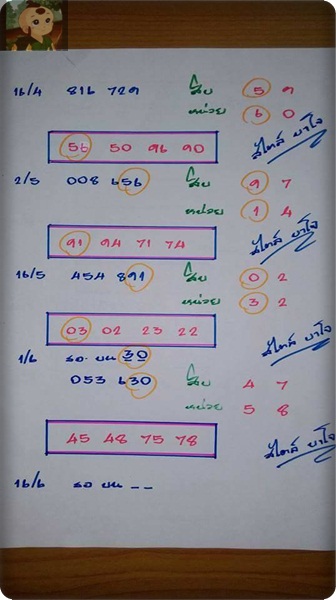 16/4 816 729 สิบ 5 9
หน่วย 6 0
56 50 96 90 สไตล์ ยาใจ
2/5 008 656 สิบ 9 7
หน่วย 1 4
91 94 71 74 สไตล์ ยาใจ
16/5 454 891 สิบ 0 2
หน่วย 3 2
03 02 23 22 สไตล์ ยาใจ
1/6 รอ บน 30
053 630 สิบ 4 7
หน่วย 5 8
45 48 75 78 สไตล์ ยาใจ
16/6 รอ บน _ _